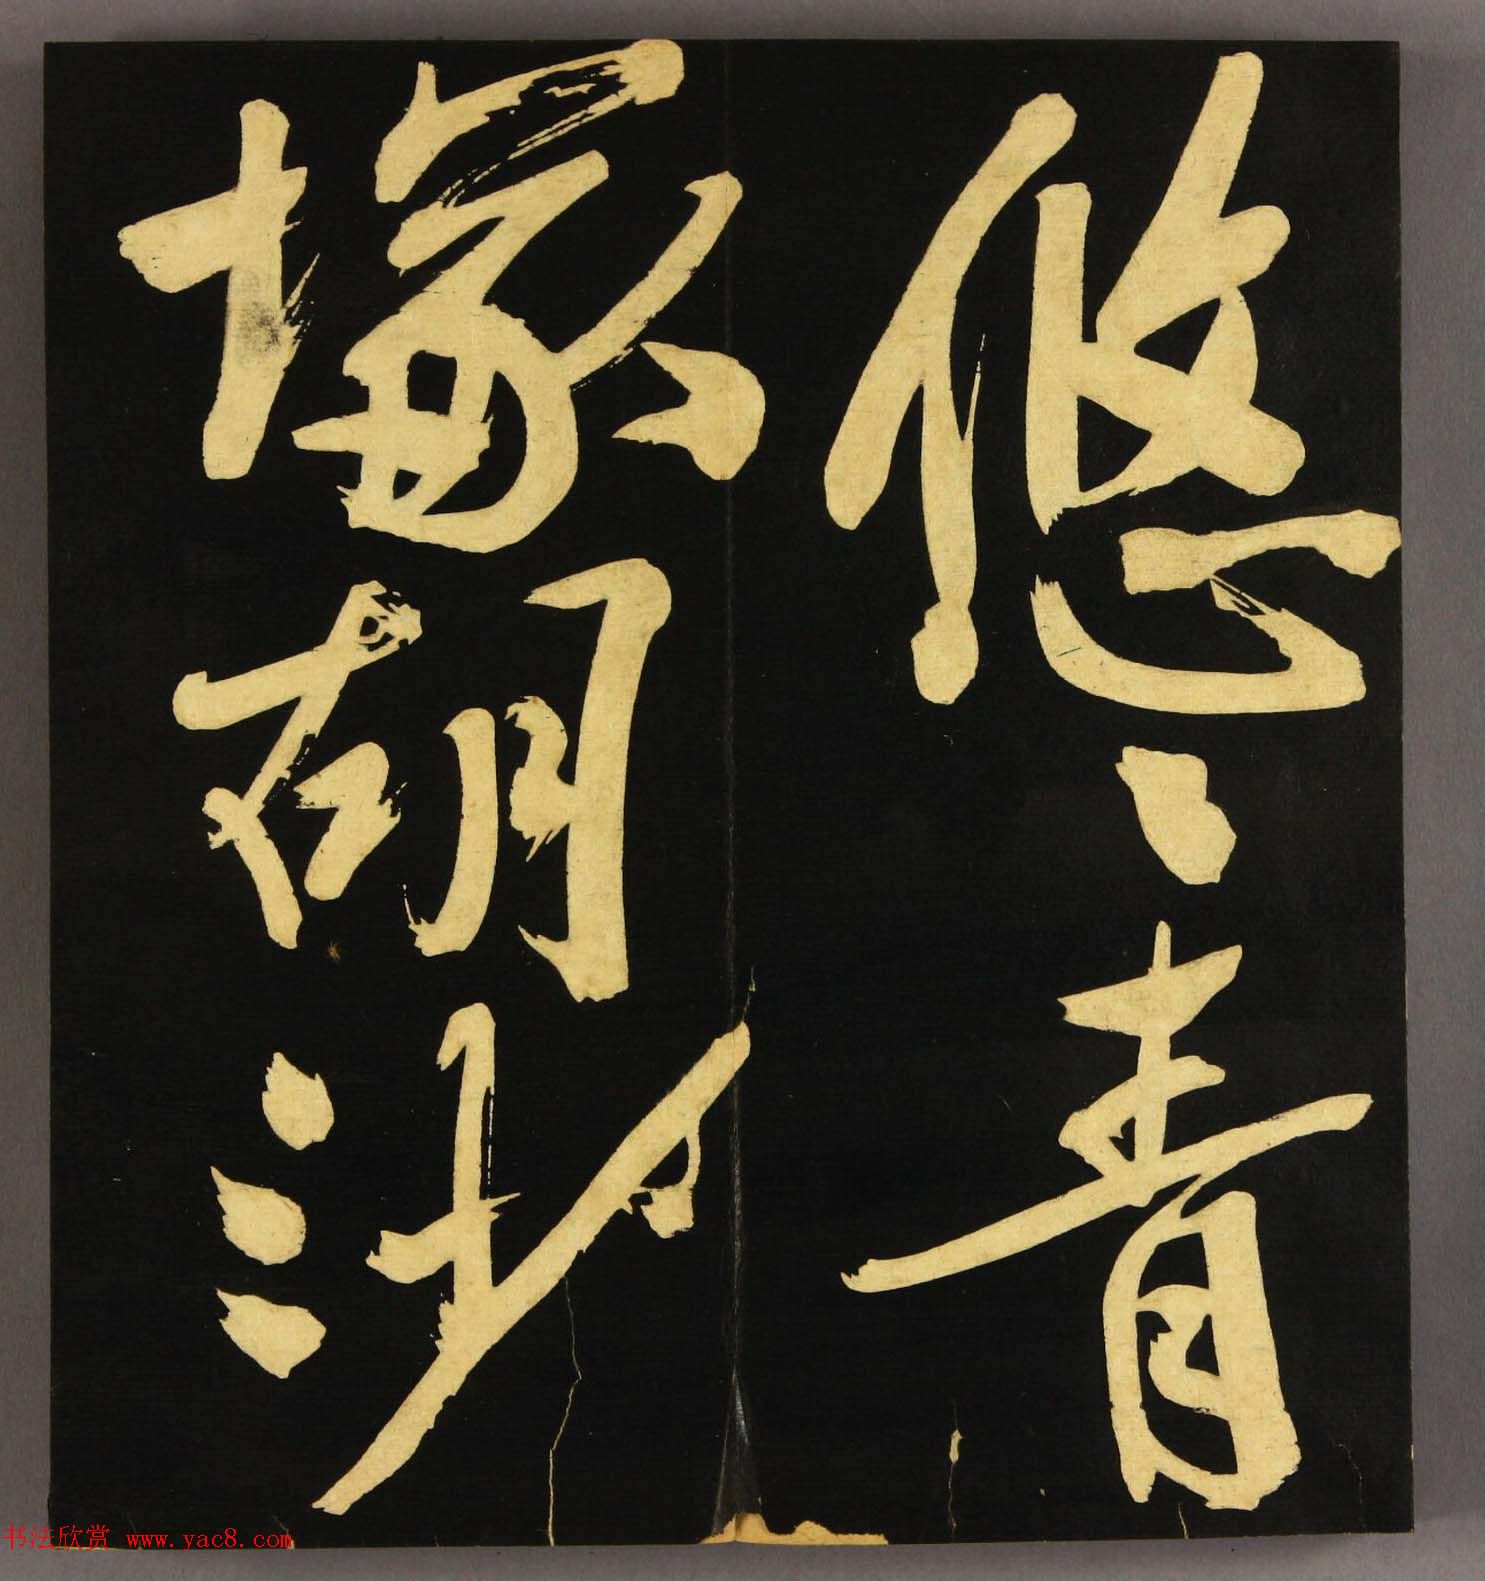 悠〻青
塚胡沙
书法欣赏 www.yac8.com